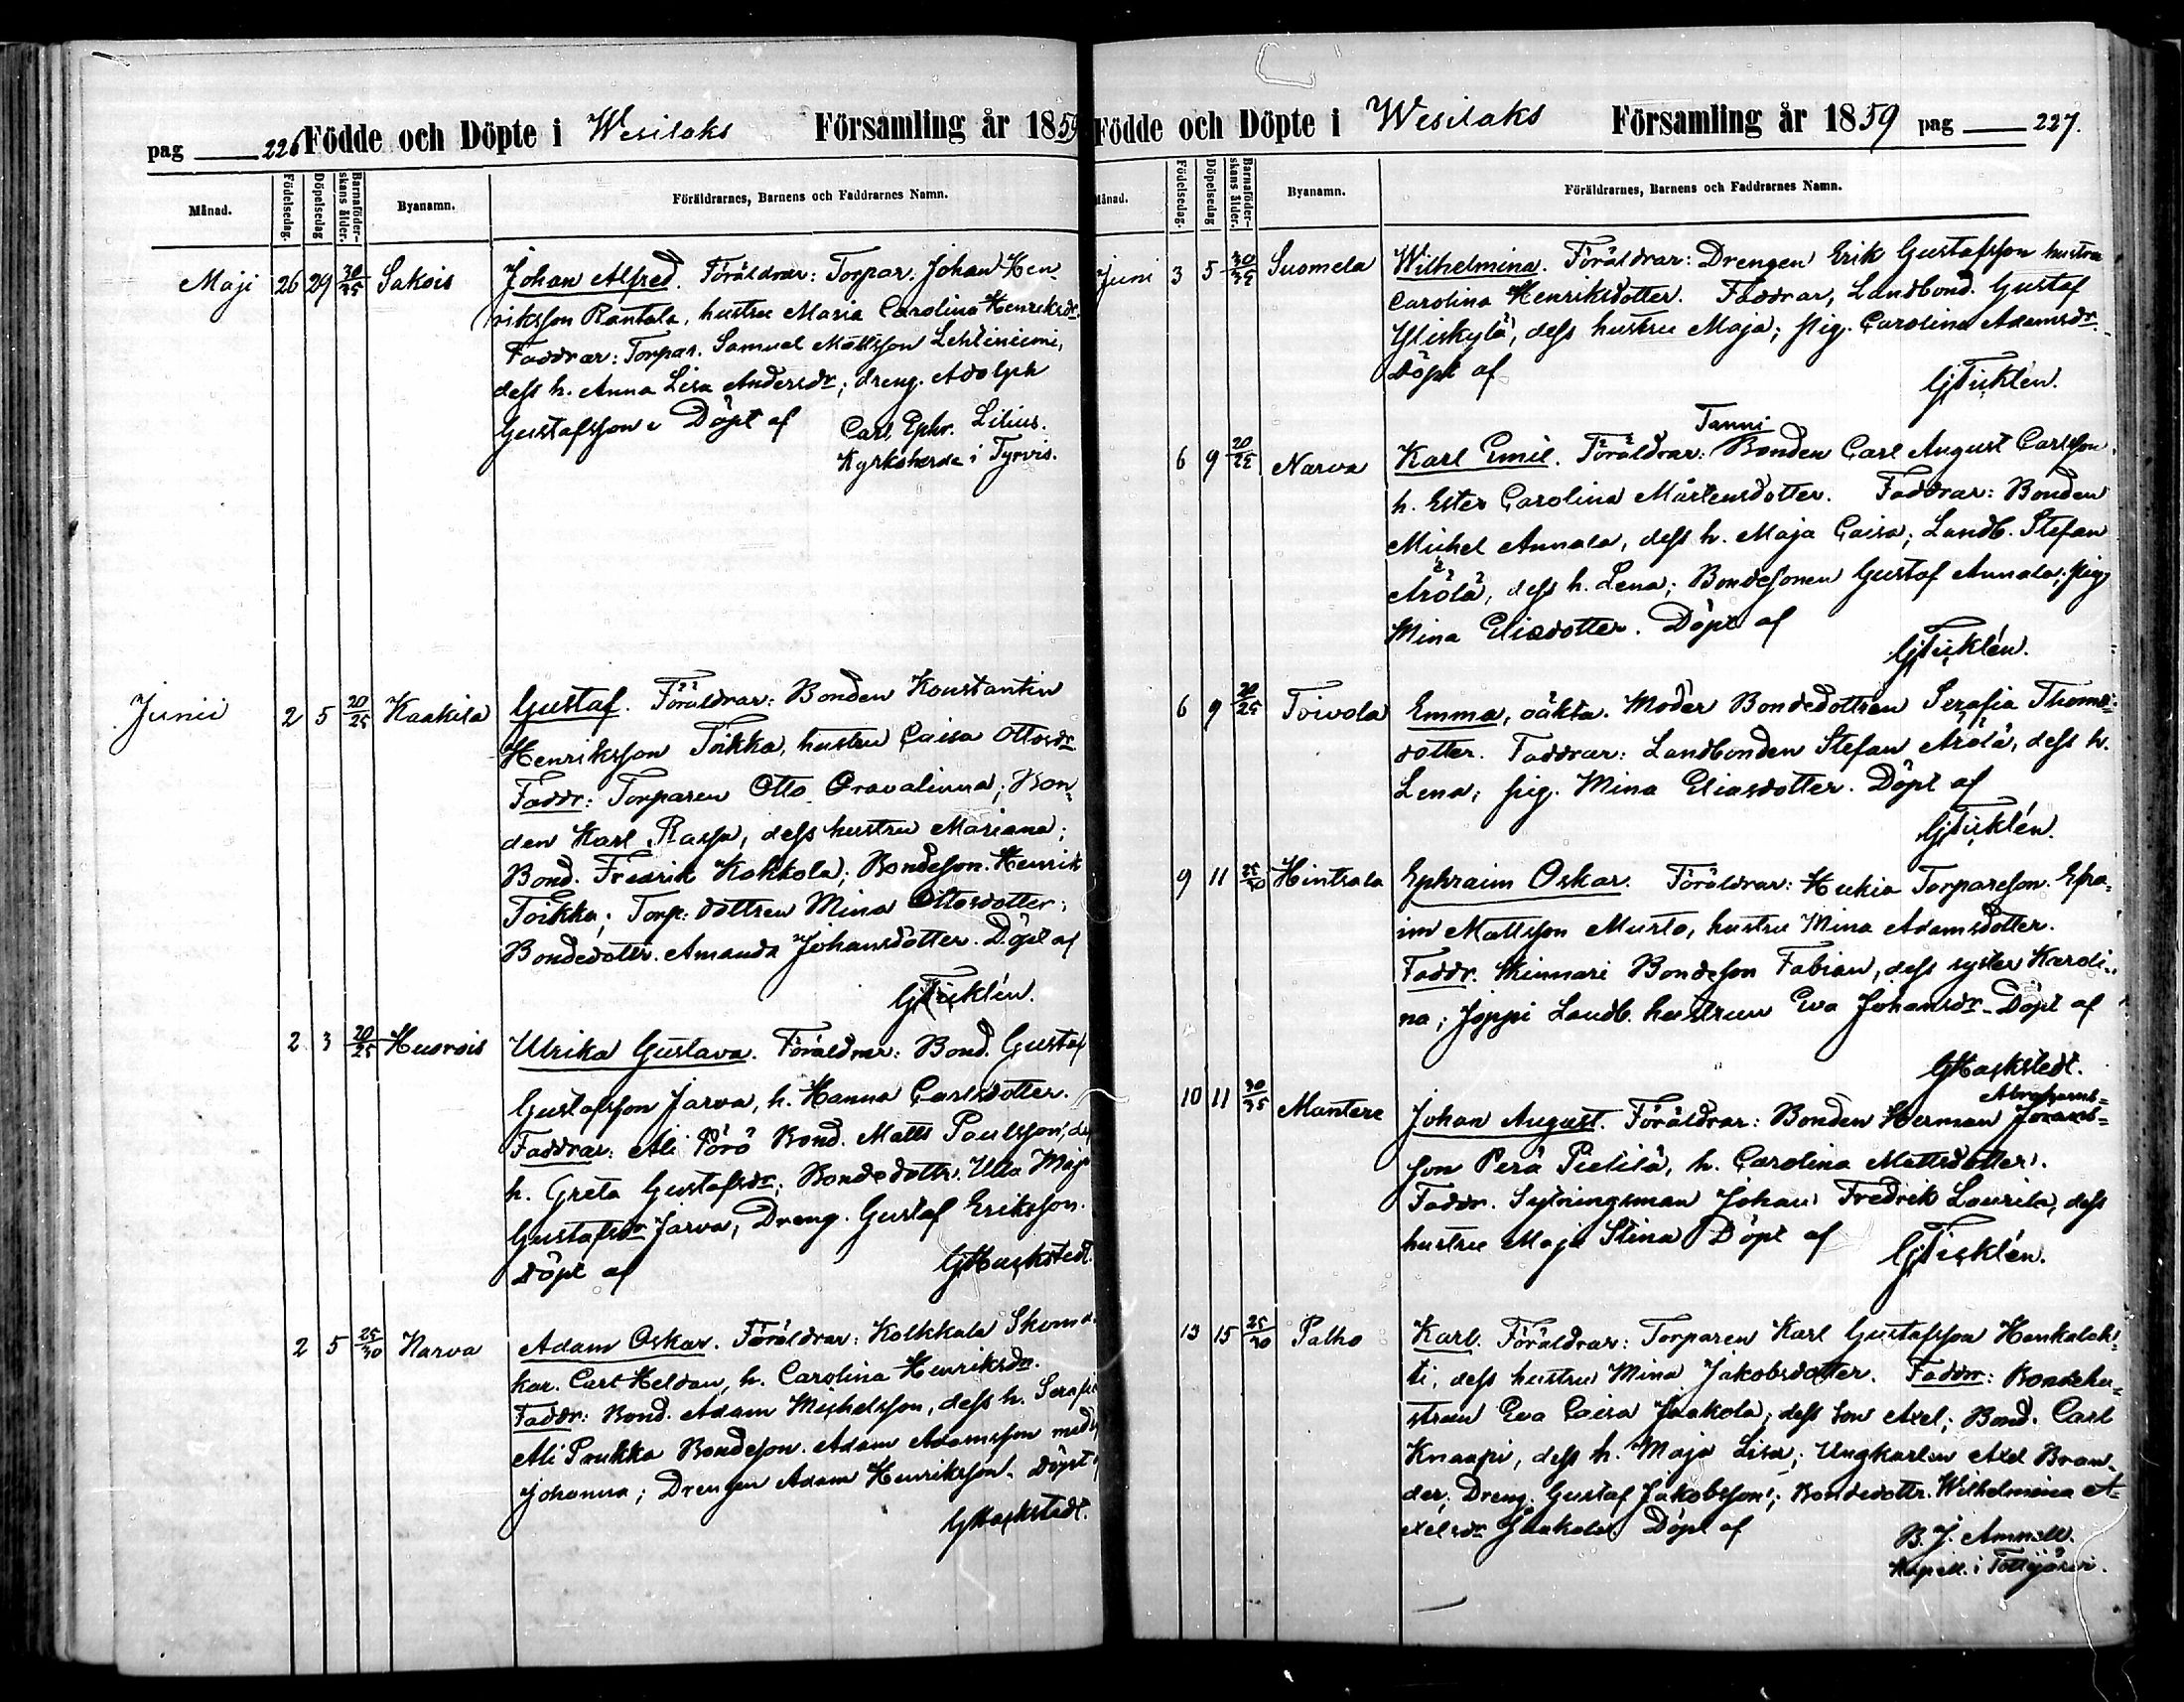 pag 226 Födde och Döpte i Wesilaks Församling år 1859
Månad. Födelsedag. Döpelsedag Barnaföder-skans ålder. Byanamn. Föräldrarnes, Barnens och Faddrarnes Namn.
Maji 26 29 30/35 Sakois Johan Alfred. Föräldrar: Torpar. Johan Hen-
riksson Rantala, hustru Maria Carolina Henriksdr.
Faddrar: Torpar. Samuel Mattsson Lehtiniemi,
dess h. Anna Lisa Andersdr; dreng. Adolph
Gustafsson. Döpt af Carl Ephr. Lilius.
Kyrkoherde i Tyrvis.
Junii 2 5 20/25 Kaakila Gustaf. Föräldrar: Bonden Konstantin
Henriksson Toikka, hustru Caisa Ottosdr.
Faddr: Torparen Otto Oravalinna; Bon-
den Karl Rassa, dess hustru Mariana;
Bond. Fredrik Kokkola; Bondeson. Henrik
Toikka; Torp: dottren Mina Ottosdotter;
Bondedottr. Amanda Johansdotter. Döpt af
GTicklén.
2 3 20/25 Huorois Ulrika Gustava. Föräldrar: Bond. Gustaf
Gustafsson Jarva, h. Hanna Carlsdotter.
Faddrar: Ali Pörö Bond. Matts Paulsson,
h. Greta Gustafsdr; Bondedottr. Ulla Maja
Gustafsdr Jarva, Dreng. Gustaf Eriksson.
Döpt af GHackstedt.
2 5 25/30 Narva Adam Oskar. Föräldrar: Kolkkala Skoma-
kar. Carl Heldan, h. Carolina Henriksdr.
Faddr: Bond. Adam Michelsson, dess h. Serafia
Ali Prukka Bondeson. Adam Adamsson med
Johanna; Drengen Adam Henriksson. Döpt
GHackstedt.
Födde och Döpte i Wesilaks Församling år 1859 pag 227.
Månad. Födelsedag. Döpelsedag Barnaföder-skans ålder. Byanamn. Föräldrarnes, Barnens och Faddrarnes Namn.
Juni 3 5 30/35 Suomela Wilhelmina. Föräldrar: Drengen Erik Gustafsson hustru
Carolina Henriksdotter. Faddrar, Landbond. Gustaf
Yliskylä, dess hustru Maja; pig. Carolina Adamsdr.
Döpt af GTicklén.
Tanni
6 9 20/25 Narva Karl Emil. Föräldrar: Bonden Carl August Carlsson
h. Ester Carolina Mårtensdotter. Faddrar: Bonden
Michel Annala, dess h. Maja Caisa; Landb. Stefan
Arölä, dess h. Lena; Bondesonen Gustaf Annala; pig
Mina Eliædotter. Döpt af
GTicklén.
6 9 20/25 Toivola Emma, oäkta. Moder Bondedottren Serafia Thoms-
dotter. Faddrar: Landbonden Stefan Arölä, dess h.
Lena; pig. Mina Eliasdotter. Döpt af
GTicklén.
9 11 25/30 Hintsala Ephraim Oskar. Föräldrar: Hukia Torpareson. Efra-
im Mattsson Musto, hustru Mina Adamsdotter.
Faddr. Kinnari Bondeson Fabian, dess syster Karoli-
na; Joppi Landb. hustrun Eva Johansdr. Döpt af
GHackstedt.
Abrahams-
10 11 30/35 Mantere Johan August. Föräldrar: Bonden Herman Johans-
son Perä Pietilä, h. Carolina Mattsdotter.
Faddr. Sytningsman Johan Fredrik Laurila, dess
hustru Maja Stina. Döpt af GTicklén.
13 15 25/30 Palho Karl. Föräldrar: Torparen Karl Gustafsson Honkalah-
ti, dess hustru Mina Jakobsdotter. Faddrr: Bondehu-
strun Eva Caisa Jaakola; dess son Axel; Bond. Carl
Knaapi, dess h. Maja Lisa; Ungkarlen Axel Bran-
der; Dreng. Gustaf Jakobsson; Bondedottr. Wilhelmina A-
xelsdr Jaakola. Döpt af B. J. Amnell.
Kapell. i Tottijärvi.